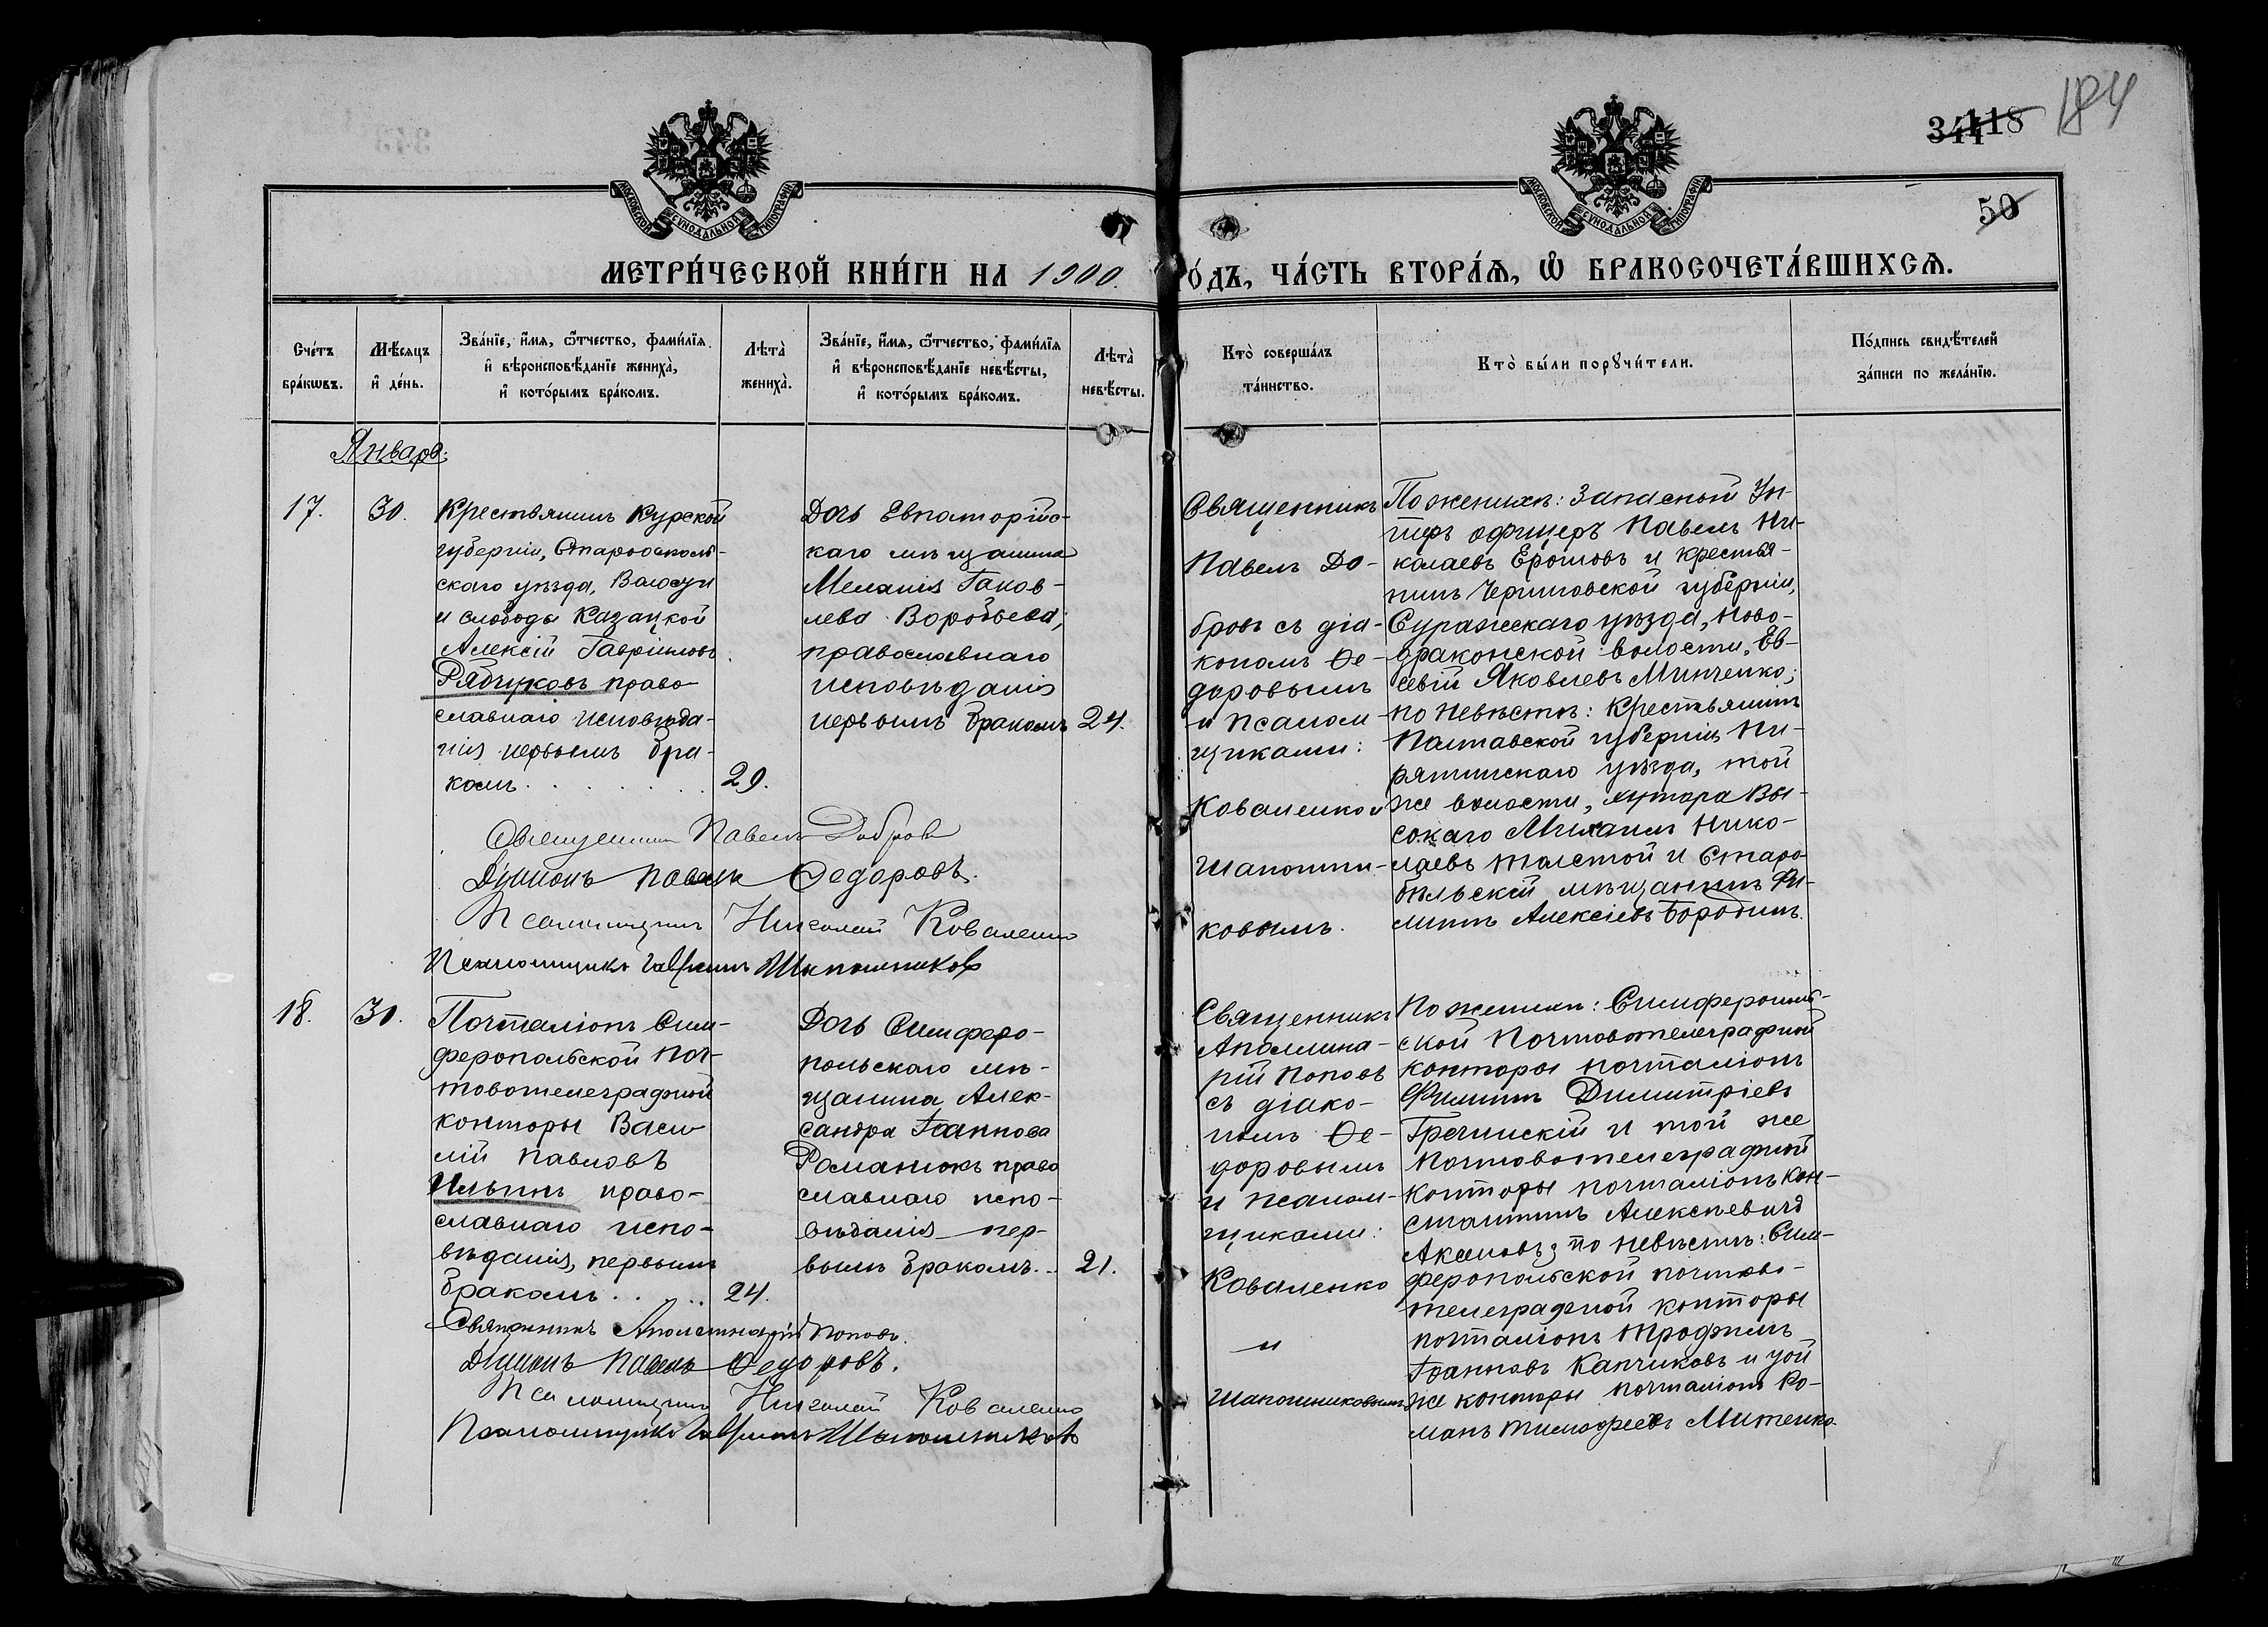 184
344 118
50
МОСКОВСКОЙ СѴНОДАЛЬНОЙ ТИПОГРАФІИ.
МОСКОВСКОЙ СѴНОДАЛЬНОЙ ТИПОГРАФІИ.
МЕТРИ́ЧЕСКОЙ КНИ́ГИ НА 1900. ГО́ДЪ, ЧА́СТЬ ВТОРА́Ѧ, Ѽ БРАКОСОЧЕТА́ВШИХСѦ.
Сче́тъ бра́кѡвъ.
Мѣ́сяцъ и҆ де́нь.
Зва́нїе, и҆́мѧ, ѻ҆́тчество, фами́лїѧ
и҆ вѣроисповѣ́данїе жениха̀,
и҆ кото́рымъ бра́комъ.
Лѣта̀ жениха̀.
Зва́нїе, и҆́мѧ, ѻ҆́тчество, фами́лїѧ
и҆ вѣроисповѣ́данїе невѣ́сты,
и҆ кото́рымъ бра́комъ.
Лѣта̀ невѣ́сты.
Кто̀ соверша́лъ
та́инство.
Кто̀ бы́ли порꙋчи́тели.
По́дпись свидѣ́телей
за́писи по жела́нїю.
Январь.
17.
30.
Крестьянинъ Курской
губерніи, Старооско́ль-
скаго уѣзда, Волости
и слободы Казацкой
Алексій Гавріиловъ
Рябчуковъ право-
славнаго исповѣда-
нія первымъ бра-
комъ . . . . . . . 29.
Дочь Евпаторійс-
каго мѣщанина
Меланія Іаков-
лева Воробьева,
православнаго
исповѣданія
первымъ бракомъ 24.
Священникъ
Павелъ До-
бровъ съ діа-
кономъ Ѳе-
доровымъ
и псалом-
щиками:
Коваленкой
Шапошни-
ковымъ.
По женихѣ: Запасный Ун-
теръ офицеръ Павелъ Ни-
колаевъ Ерошовъ и крестья-
нинъ Черниговской губерніи,
Суражскаго уѣзда, Ново-
драконской волости, Ев-
севій Яковлевъ Минченко;
по невѣстѣ: Крестьянинъ
Полтавской губерніи Пи-
рятинскаго уѣзда, той
же волости, хутора Вы-
сокаго Михаилъ Нико-
лаевъ Толстой и Старо-
бѣльскій мѣщанинъ Фи-
липъ Алексіевъ Бородинъ.
Священникъ Павелъ Добровъ
Діаконъ Павелъ Ѳедоровъ.
Псаломщикъ Николай Коваленко
Псаломщикъ Гавріилъ Шапошниковъ
18.
30.
Почталіонъ Сим-
феропольской Поч-
товотелеграфной
конторы Васи-
лій Павловъ
Ильинъ право-
славнаго испо-
вѣданія, первымъ
бракомъ . . . . . 24.
Дочь Симферо-
польскаго мѣ-
щанина Алек-
сандра Іоаннова
Романюкъ право
славнаго испо-
вѣданія пер-
вымъ бракомъ. . . 21.
Священникъ
Аполлина-
рій Поповъ
съ діако-
номъ Ѳе-
доровымъ
и псалом-
щиками:
Коваленко
и
Шапошниковымъ
По женихѣ: Симферополь-
ской Почтовотелеграфной
конторы почталіонъ
Филиппъ Димитріевъ
Гречинскій и той же
почтовотелеграфной
конторы почталіонъ Кон-
стантинъ Алексѣевичъ
Аксеновъ; по невѣстѣ: Сим-
феропольской почтово-
телеграфной конторы
почталіонъ Трофимъ
Іоанновъ Капчиковъ и той
же конторы почталіонъ Ро-
манъ Тимофеевъ Митенко
Священникъ Аполлинарій Поповъ.
Діаконъ Павелъ Ѳедоровъ.
Псаломщикъ Николай Коваленко
Псаломщикъ Гавріилъ Шапошниковъ